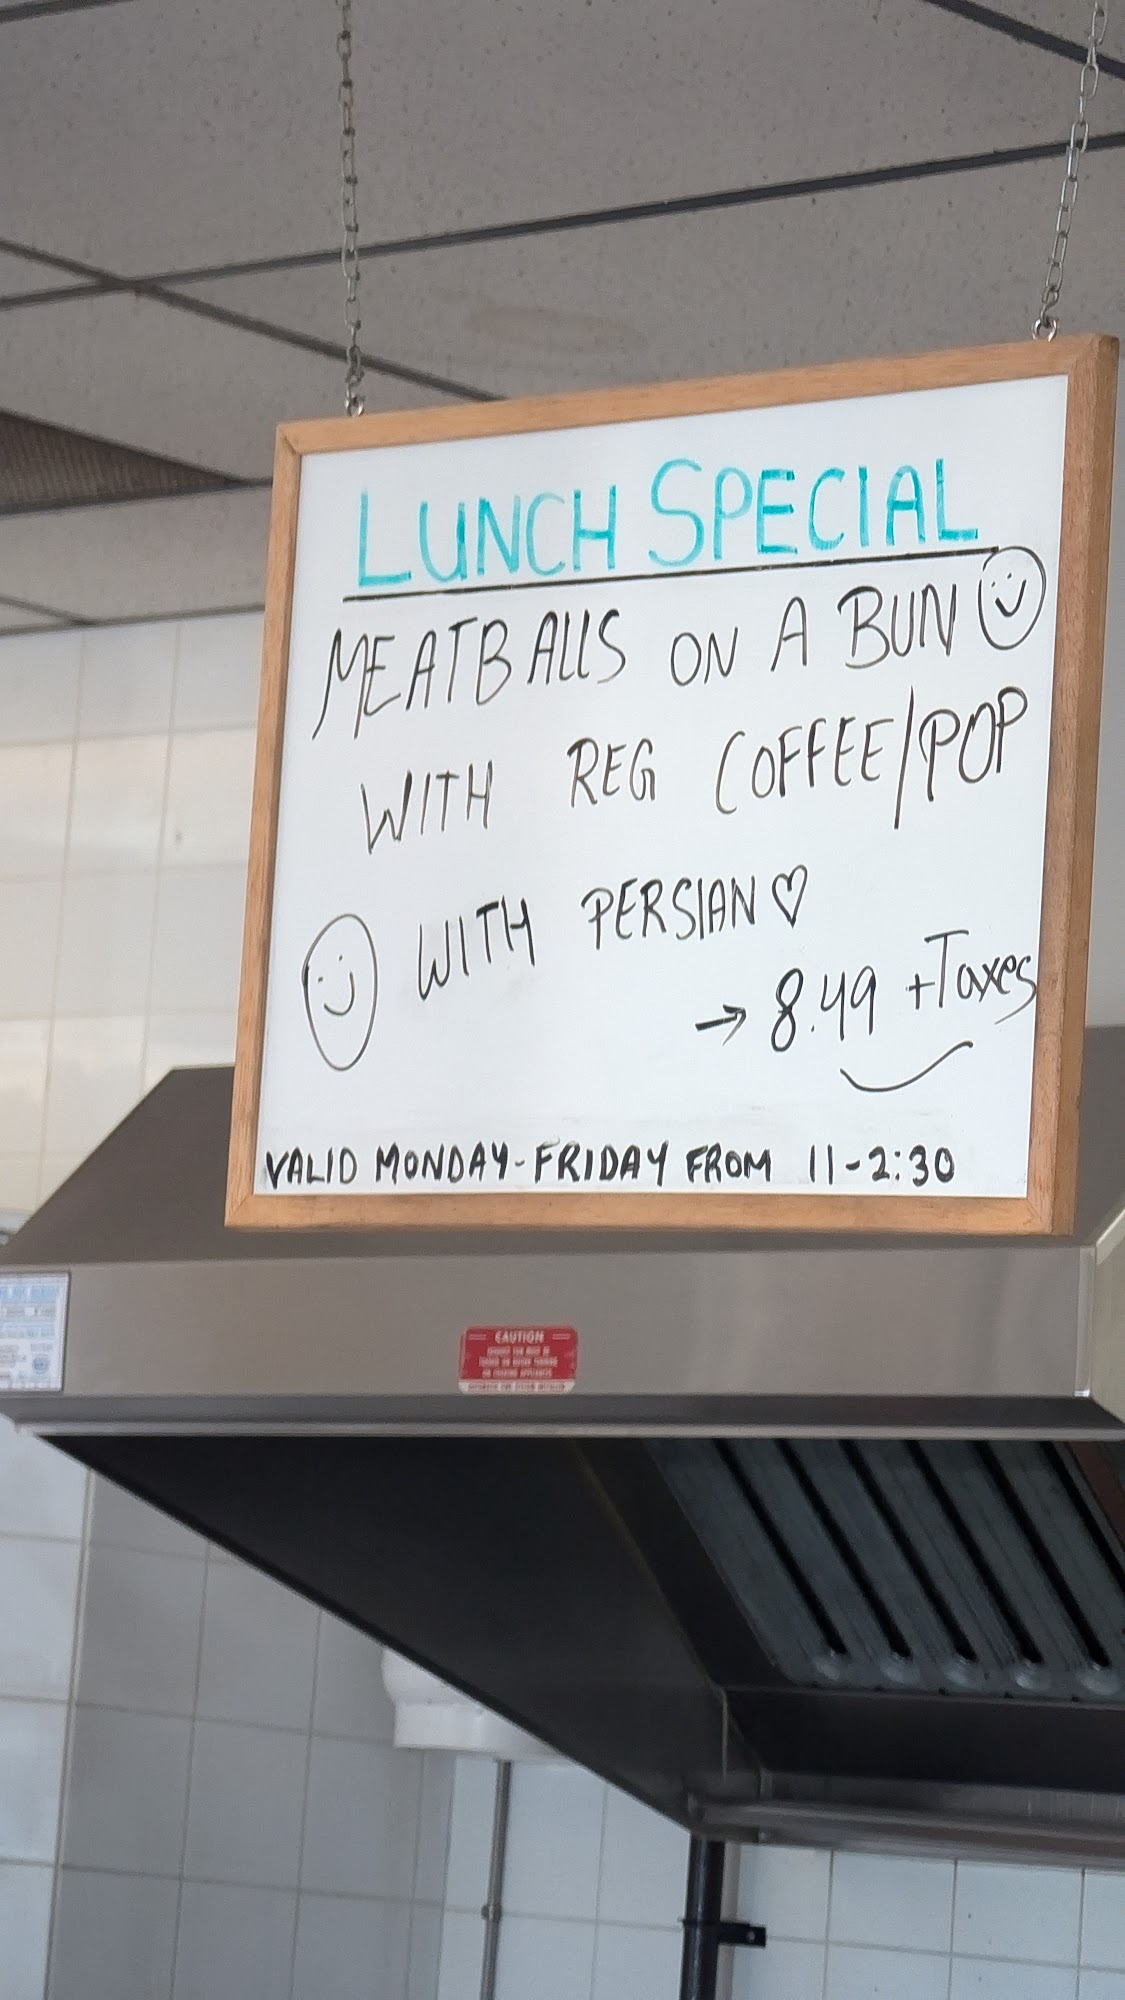 LUNCH SPECIAL
MEATBALLS ON A BUN
WITH REG COFFEE/POP
WITH PERSIAN ♡
→ 8.49 +Taxes
VALID MONDAY-FRIDAY FROM 11-2:30
CAUTION